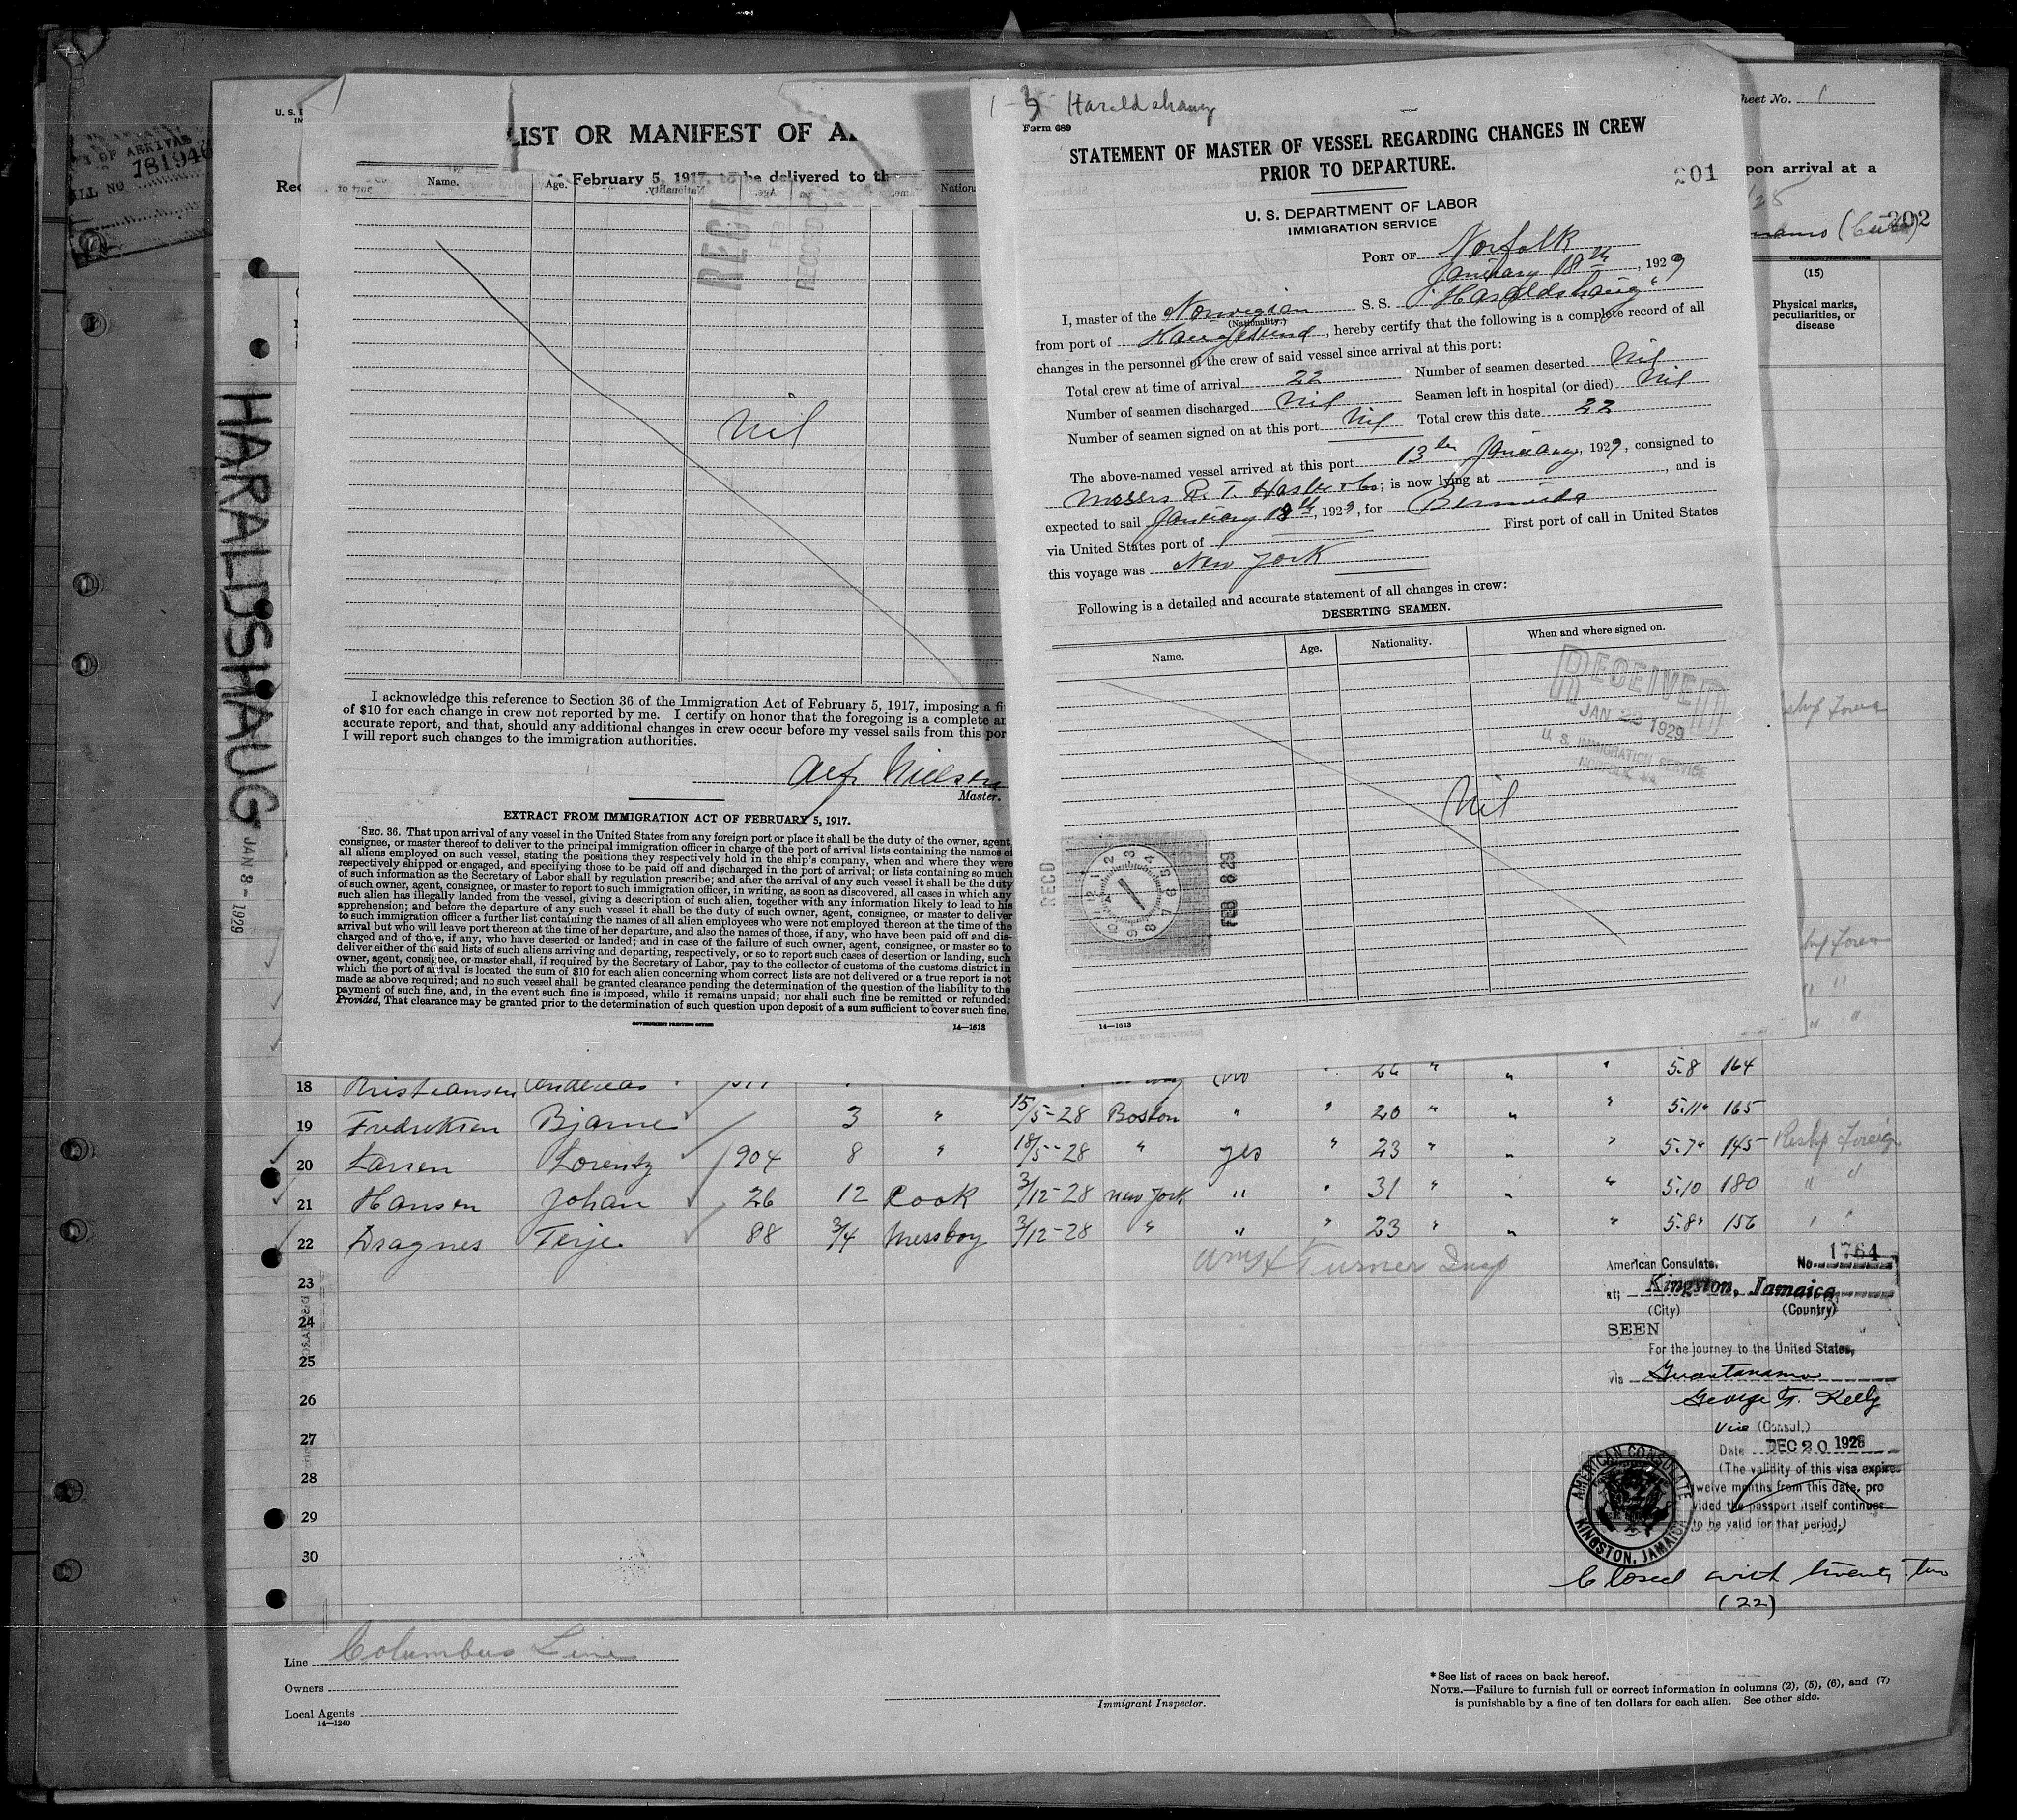 OF ARRIVAL
181940
HARALDSHAUG
JAN 8 - 1929
U. S.
LIST OR MANIFEST OF A
February 5, 1917, to be delivered to the
Name.
Age.
Nationality.
Nil
I acknowledge this reference to Section 36 of the Immigration Act of February 5, 1917, imposing a fi
of $10 for each change in crew not reported by me. I certify on honor that the foregoing is a complete an
accurate report, and that, should any additional changes in crew occur before my vessel sails from this por
I will report such changes to the immigration authorities.
Alf. Nielsen
Master.
EXTRACT FROM IMMIGRATION ACT OF FEBRUARY 5, 1917.
SEC. 36. That upon arrival of any vessel in the United States from any foreign port or place it shall be the duty of the owner, agent
consignee, or master thereof to deliver to the principal immigration officer in charge of the port of arrival lists containing the names of
all aliens employed on such vessel, stating the positions they respectively hold in the ship's company, when and where they were
respectively shipped or engaged, and specifying those to be paid off and discharged in the port of arrival; or lists containing so much
of such information as the Secretary of Labor shall by regulation prescribe; and after the arrival of any such vessel it shall be the duty
of such owner, agent, consignee, or master to report to such immigration officer, in writing, as soon as discovered, all cases in which any
such alien has illegally landed from the vessel, giving a description of such alien, together with any information likely to lead to his
apprehension; and before the departure of any such vessel it shall be the duty of such owner, agent, consignee, or master to deliver
to such immigration officer a further list containing the names of all alien employees who were not employed thereon at the time of the
arrival but who will leave port thereon at the time of her departure, and also the names of those, if any, who have been paid off and dis-
charged and of those, if any, who have deserted or landed; and in case of the failure of such owner, agent, consignee, or master so to
deliver either of the said lists of such aliens arriving and departing, respectively, or so to report such cases of desertion or landing, such
owner, agent, consignee, or master shall, if required by the Secretary of Labor, pay to the collector of customs of the customs district in
which the port of arrival is located the sum of $10 for each alien concerning whom correct lists are not delivered or a true report is not
made as above required; and no such vessel shall be granted clearance pending the determination of the question of the liability to the
payment of such fine, and, in the event such fine is imposed, while it remains unpaid; nor shall such fine be remitted or refunded:
Provided, That clearance may be granted prior to the determination of such question upon deposit of a sum sufficient to cover such fine.
GOVERNMENT PRINTING OFFICE
14—1613
Haraldshaug
Form 689
STATEMENT OF MASTER OF VESSEL REGARDING CHANGES IN CREW
PRIOR TO DEPARTURE.
201
U. S. DEPARTMENT OF LABOR
IMMIGRATION SERVICE
PORT OF Norfolk
January 18th, 1929
I, master of the Norwegian S. S. "Haraldshaug"
(Nationality.)
from port of Haugesund, hereby certify that the following is a complete record of all
changes in the personnel of the crew of said vessel since arrival at this port:
Total crew at time of arrival 22 Number of seamen deserted Nil
Number of seamen discharged Nil Seamen left in hospital (or died) Nil
Number of seamen signed on at this port Nil Total crew this date 22
The above-named vessel arrived at this port 13th January, 1929, consigned to
Messrs R. T. Hasler & Co; is now lying at , and is
expected to sail January 18th, 1929, for Bermuda
via United States port of First port of call in United States
this voyage was New York
Following is a detailed and accurate statement of all changes in crew:
DESERTING SEAMEN.
Name. Age. Nationality. When and where signed on.
RECEIVED
JAN 23 1929
U. S. IMMIGRATION SERVICE
NORFOLK, VA.
Nil
RECD
FEB 8 29
14—1613
Sheet No. 1
upon arrival at a
202
(15)
Physical marks,
peculiarities, or
disease
18 Kristiansen Andreas 26 " " " 5.8 164
19 Fredriksen Bjarne 3 " 15/5-28 Boston " " 20 " " " 5.11" 165
20 Larsen Lorentz 904 8 " 18/5-28 " yes " 23 " " " 5.7" 145 Reshp Foreign
21 Hansen Johan 26 12 Cook 3/12-28 New York " " 31 " " " 5.10 180 " "
22 Dragnes Terje 88 3/4 Messboy 3/12-28 " " " 23 " " " 5.8" 156 " "
Wm H Turner Insp
23
24
25
26
27
28
29
30
American Consulate, No. 1764
at; Kingston, Jamaica
(City) (Country)
SEEN
For the journey to the United States,
via Guantanamo
George F. Kelly
Vice (Consul.)
Date DEC 20 1928
(The validity of this visa expires
twelve months from this date, pro
vided the passport itself continues
to be valid for that period.)
AMERICAN CONSULATE
KINGSTON, JAMAICA
Closed with twenty two
(22)
Line Columbus Line
Owners
Local Agents
14—1240
Immigrant Inspector.
* See list of races on back hereof.
NOTE.—Failure to furnish full or correct information in columns (2), (5), (6), and (7)
is punishable by a fine of ten dollars for each alien. See other side.